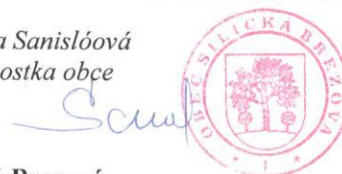 a Sanislóová
ostka obce
OBEC SILICKÁ BREZOVÁ
* 1 *